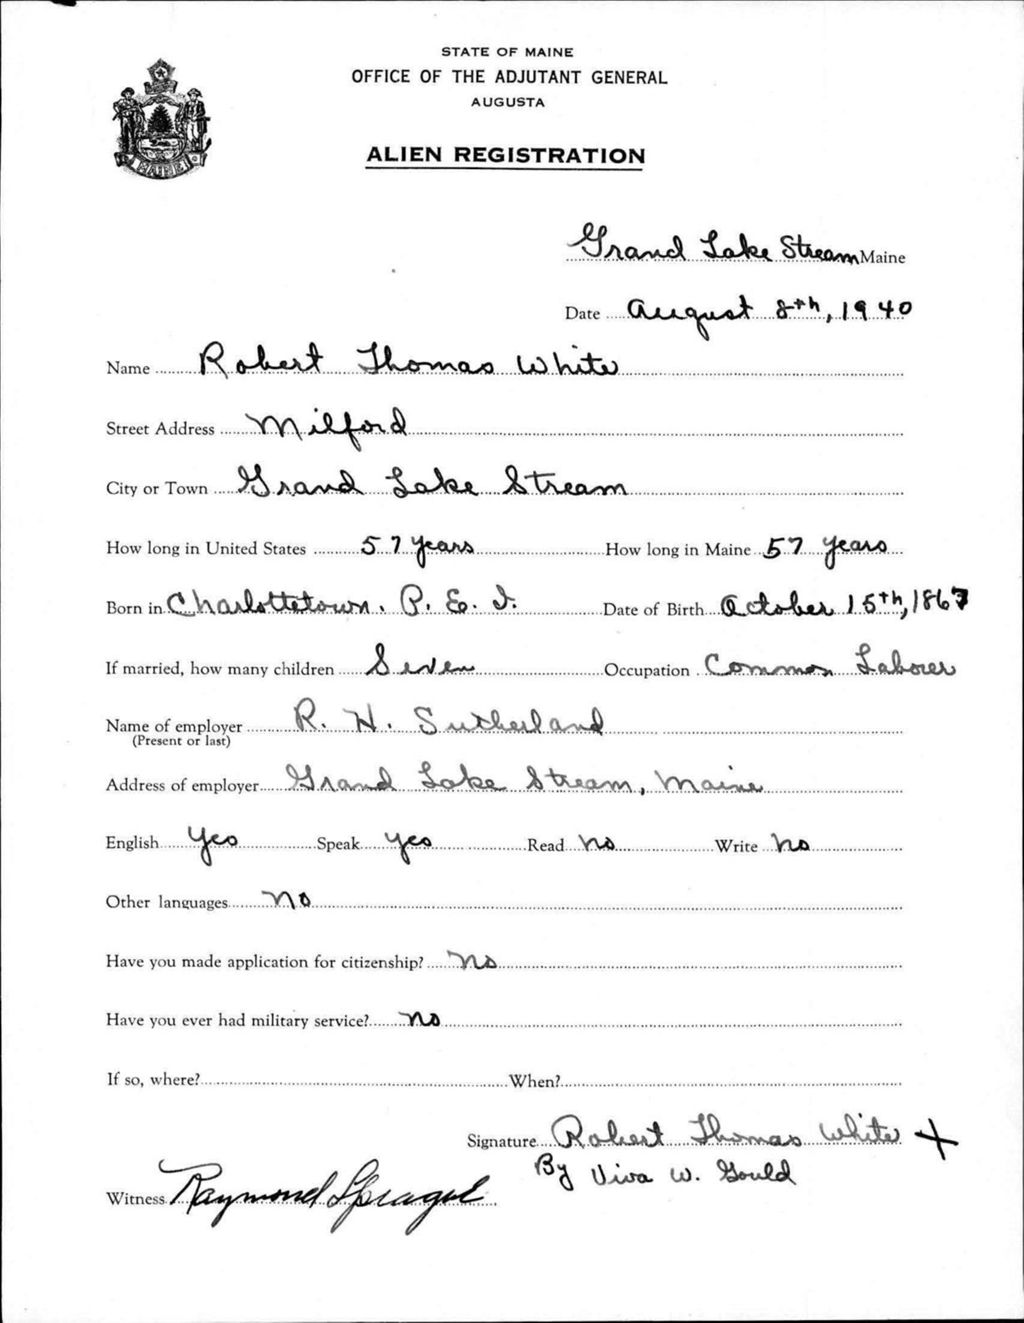 STATE OF MAINE
OFFICE OF THE ADJUTANT GENERAL
AUGUSTA
ALIEN REGISTRATION
MAINE
Grand Lake Stream Maine
Date August 8th, 1940
Name Robert Thomas White
Street Address Milford
City or Town Grand Lake Stream
How long in United States 57 years How long in Maine 57 years
Born in Charlottetown, P. E. I. Date of Birth October 15th, 1867
If married, how many children Seven Occupation Common Laborer
Name of employer R. H. Sutherland
(Present or last)
Address of employer Grand Lake Stream, Maine
English Yes Speak yes Read no Write no
Other languages no
Have you made application for citizenship? no
Have you ever had military service? no
If so, where? When?
Signature Robert Thomas White X
By Viva W. Gould
Witness Raymond Sprague